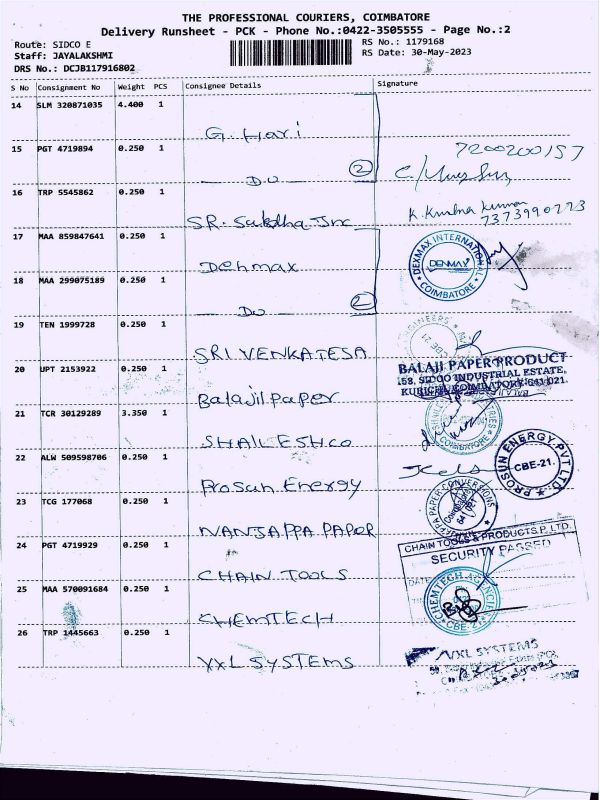 THE PROFESSIONAL COURIERS, COIMBATORE
Delivery Runsheet - PCK - Phone No.:0422-3505555 - Page No.:2
Route: SIDCO E
RS No.: 1179168
Staff: JAYALAKSHMI
RS Date: 30-May-2023
DRS No.: DCJB117916802
S No Consignment No Weight PCS Consignee Details Signature
14 SLM 320871035 4.400 1
G. Hari
7200200157
15 PGT 4719894 0.250 1
Do 2
16 TRP 5545862 0.250 1
K. Krishna Kumar
7373990223
SR. Inc
17 MAA 859847641 0.250 1
Denmax
DEXMAX INTERNATIONAL
DENMAX
COIMBATORE
18 MAA 299075189 0.250 1
Do 2
19 TEN 1999728 0.250 1
SRI VENKATESA
CBE 21
20 UPT 2153922 0.250 1
Balaji paper
BALAJI PAPER PRODUCT
158, SIDCO INDUSTRIAL ESTATE,
KURICHI, COIMBATORE-641 021.
21 TCR 30129289 3.350 1
SHAILESH.CO
COIMBATORE
22 ALW 509598706 0.250 1
Prosun Energy
PROSUN ENERGY PVT LTD
CBE-21.
23 TCG 177068 0.250 1
NANJAPPA PAPER
PAPER CONVERSIONS
24 PGT 4719929 0.250 1
CHAIN TOOLS
CHAIN TOOLS & PRODUCTS P. LTD.
SECURITY PASSED
DATE
25 MAA 570091684 0.250 1
CHEMTECH
CHEMTECH AGENCIES
CBE-21
26 TRP 1445663 0.250 1
VXL SYSTEMS
VXL SYSTEMS